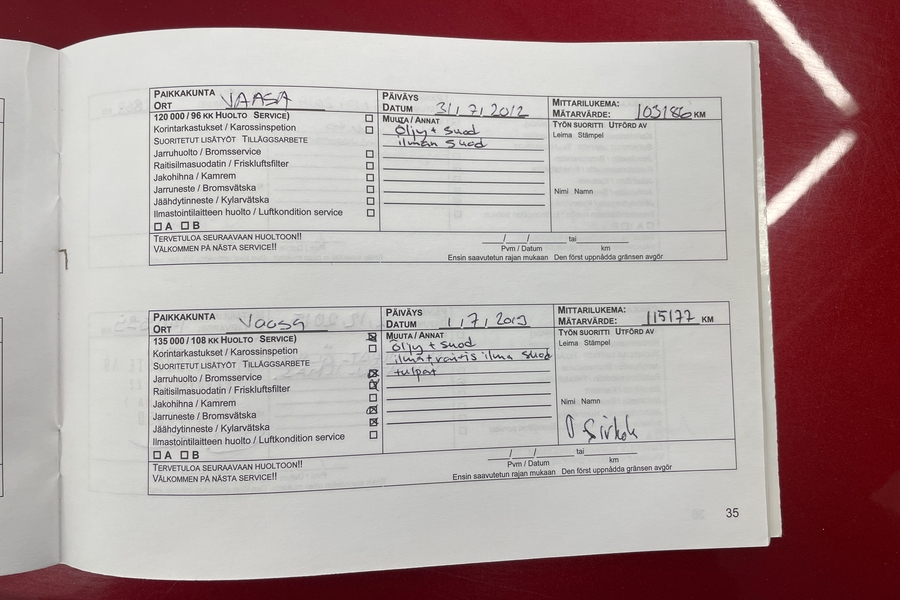 PAIKKAKUNTA
ORT VAASA
PÄIVÄYS
DATUM 31, 7, 2012
MITTARILUKEMA:
MÄTARVÄRDE: 103186 KM
120 000 / 96 KK HUOLTO SERVICE) ☐
Korintarkastukset / Karossinspetion ☐
SUORITETUT LISÄTYÖT TILLÄGGSARBETE
Jarruhuolto / Bromsservice ☐
Raitisilmasuodatin / Friskluftsfilter ☐
Jakohihna / Kamrem ☐
Jarruneste / Bromsvätska ☐
Jäähdytinneste / Kylarvätska ☐
Ilmastointilaitteen huolto / Luftkondition service ☐
☐ A ☐ B
MUUTA / ANNAT
Öljy + suod
ilman suod
TYÖN SUORITTI UTFÖRD AV
Leima Stämpel
Nimi Namn
TERVETULOA SEURAAVAAN HUOLTOON!!
VÄLKOMMEN PÅ NÄSTA SERVICE!!
/ / tai
Pvm / Datum km
Ensin saavutetun rajan mukaan Den först uppnådda gränsen avgör
PAIKKAKUNTA
ORT Vaasa
PÄIVÄYS
DATUM 1, 7, 2013
MITTARILUKEMA:
MÄTARVÄRDE: 115177 KM
135 000 / 108 KK HUOLTO SERVICE) ☒
Korintarkastukset / Karossinspetion ☐
SUORITETUT LISÄTYÖT TILLÄGGSARBETE
Jarruhuolto / Bromsservice ☒
Raitisilmasuodatin / Friskluftsfilter ☒
Jakohihna / Kamrem ☐
Jarruneste / Bromsvätska ☒
Jäähdytinneste / Kylarvätska ☒
Ilmastointilaitteen huolto / Luftkondition service ☐
☐ A ☐ B
MUUTA / ANNAT
Öljy + suod
ilma + raitis ilma suod
tulpat
TYÖN SUORITTI UTFÖRD AV
Leima Stämpel
Nimi Namn
TERVETULOA SEURAAVAAN HUOLTOON!!
VÄLKOMMEN PÅ NÄSTA SERVICE!!
/ / tai
Pvm / Datum km
Ensin saavutetun rajan mukaan Den först uppnådda gränsen avgör
35